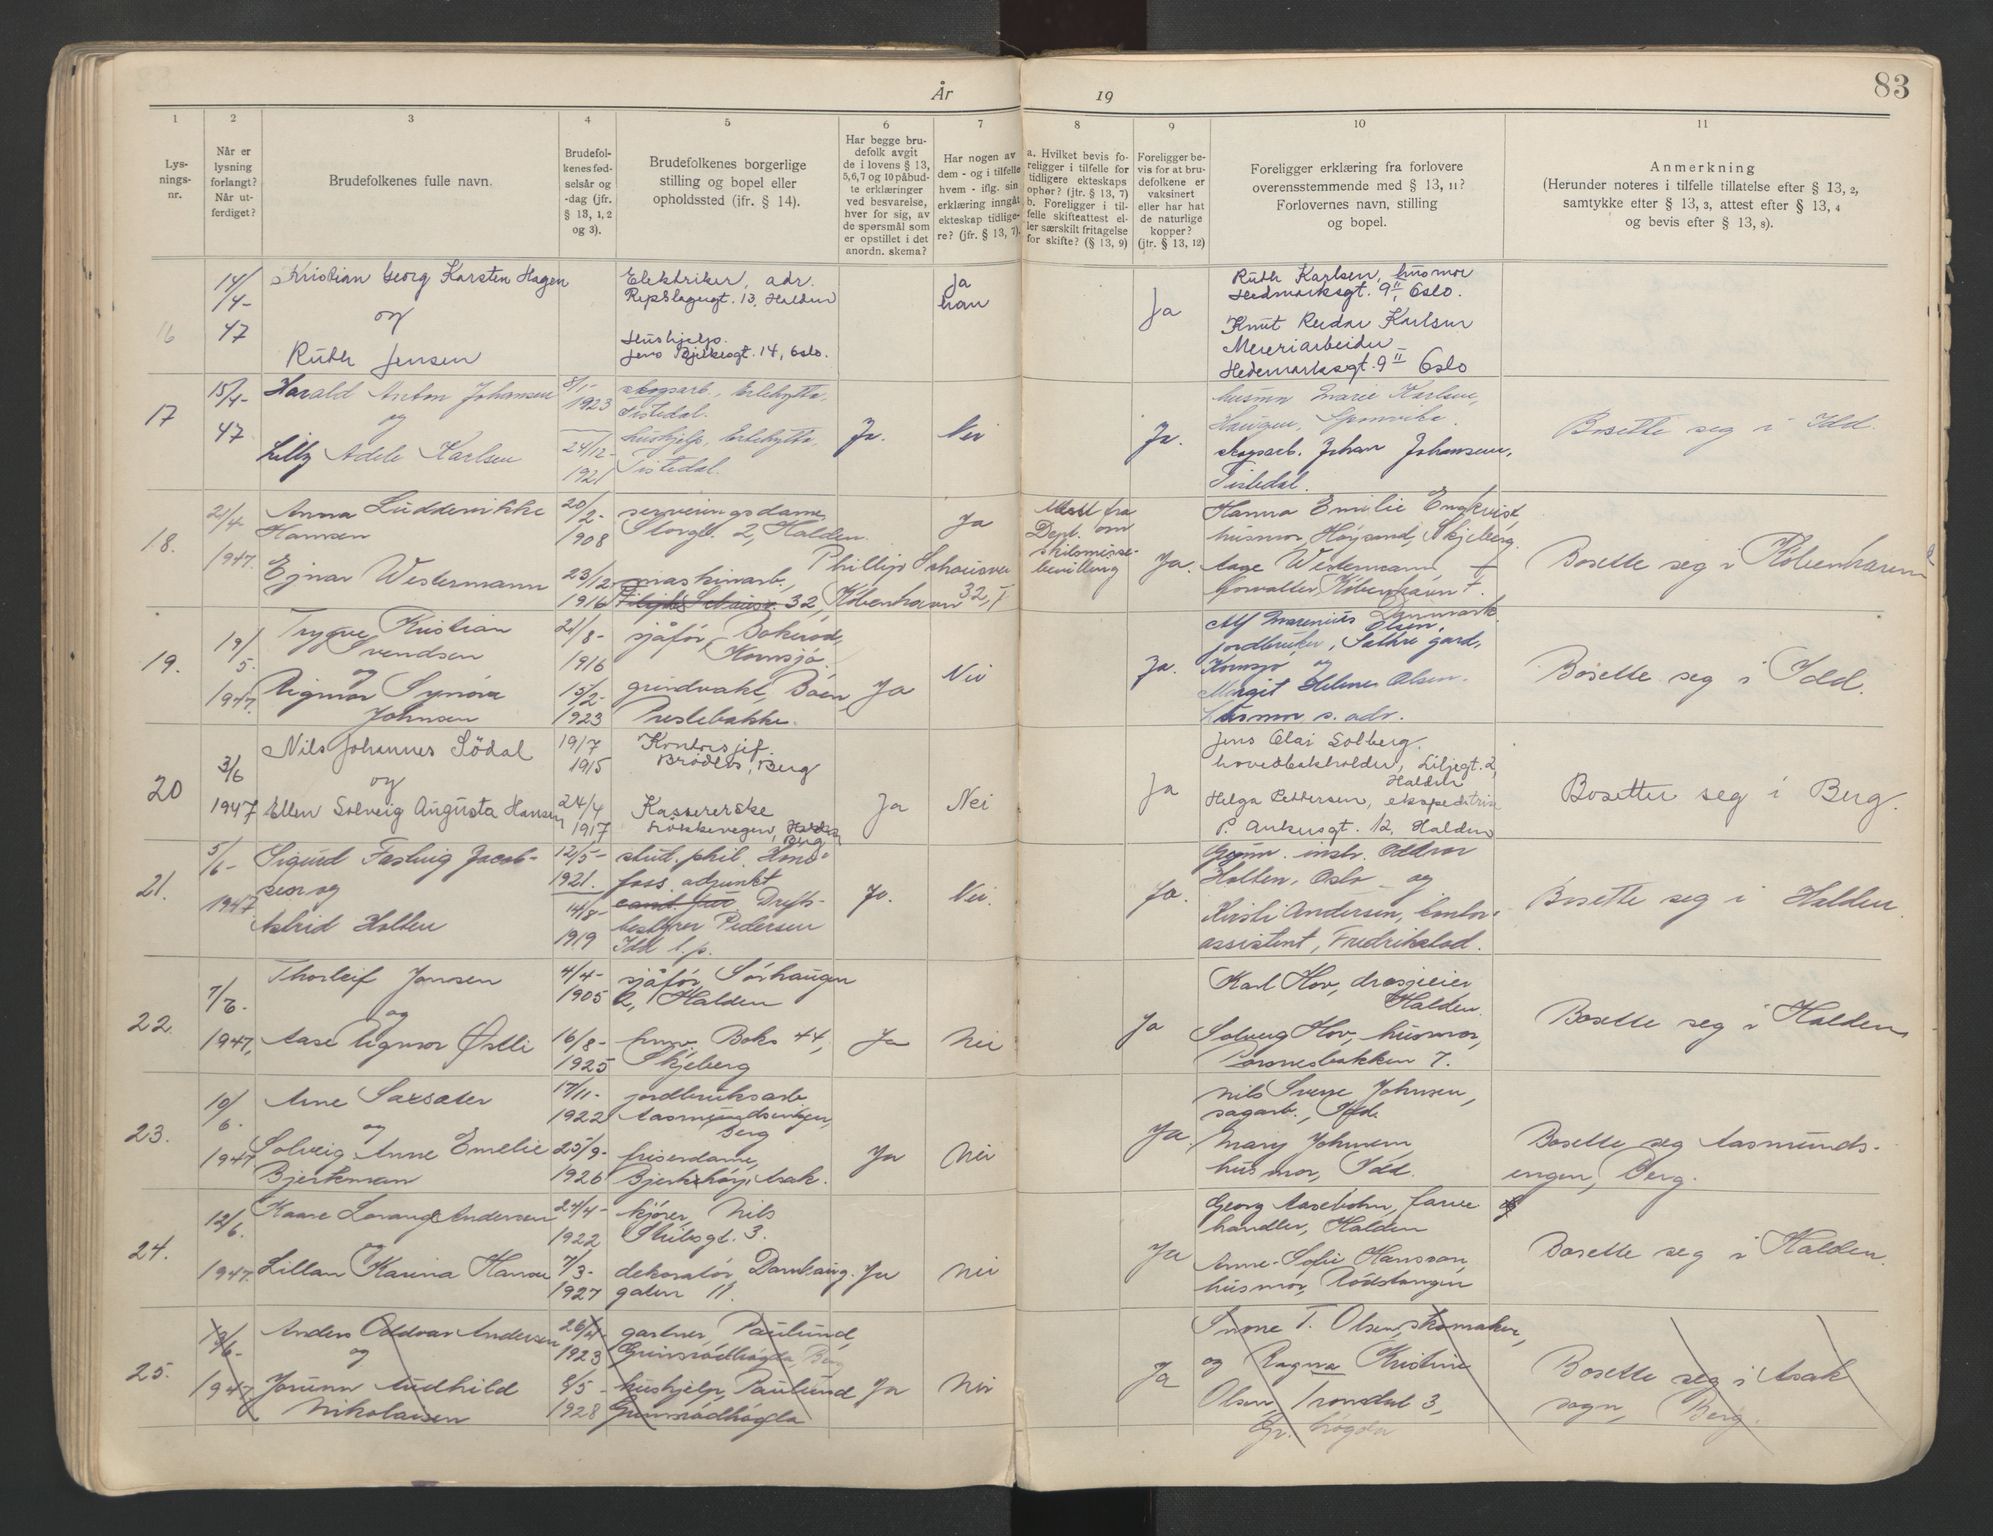 År 19
83
1 2 3 4 5 6 7 8 9 10 11
Lys-
nings-
nr.
Når er
lysning
forlangt?
Når ut-
ferdiget?
Brudefolkenes fulle navn.
Brudefol-
kenes fød-
selsår og
-dag (jfr.
§ 13, 1, 2
og 3).
Brudefolkenes borgerlige
stilling og bopel eller
opholdssted (jfr. § 14).
Har begge bru-
defolk avgit
de i lovens § 13,
5,6,7 og 10 påbud-
te erklæringer
ved besvarelse,
hver for sig, av
de spørsmål som
er opstillet i det
anordn. skema?
Har nogen av
dem - og i tilfelle
hvem - iflg. sin
erklæring inngåt
ekteskap tidlige-
re? (jfr. § 13, 7).
a. Hvilket bevis fo-
religger i tilfelle for
tidligere ekteskaps
ophør? (jfr. § 13, 7)
b. Foreligger i til-
felle skifteattest el-
ler særskilt fritagelse
for skifte? (§ 13, 9)
Foreligger be-
vis for at bru-
defolkene er
vaksinert
eller har hat
de naturlige
kopper?
(jfr. § 13, 12)
Foreligger erklæring fra forlovere
overensstemmende med § 13, 11?
Forlovernes navn, stilling
og bopel.
Anmerkning
(Herunder noteres i tilfelle tillatelse efter § 13, 2,
samtykke efter § 13, 3, attest efter § 13, 4
og bevis efter § 13, 8).
16
14/
4-
47
Kristian Georg Karsten Hagen
og
Ruth Jensen
Elektriker, adr.
Repslagergt. 13, Halden
Hushjelp.
Jens Bjelkesgt. 14, Oslo.
Ja
han
Ja
Ruth Karlsen, husmor
Hedmarksgt. 9 II, Oslo.
Knut Reidar Karlsen
Meieriarbeider
Hedemarksgt. 9 II Oslo
17
15/4-
47
Harald Anton Johansen
og
Lilly Adele Karlsen
8/1-
1923
24/12-
1921
skogsarb., Erlehytta,
Tistedal.
hushjelp, Erlehytta,
Tistedal.
Ja.
Nei
Ja.
husmor Marie Karlsen,
Haugen, Sponvika.
skogsarb. Johan Johansen,
Tistedal.
Bosette seg i Idd.
18.
21/4
1947.
Anna Luddevikke
Hansen
Ejnar Westermann
20/
2-
1908
23/12
1916
serveringsdame
Storgt. 2, Halden.
maskinarb., Phillip Schousvei
32, København 32, I
Ja
Attest fra
Dept. om
skilsmisse-
bevilling
Ja.
Hanna Emilie Engkvist
husmor, Høysand, Skjeberg.
Aage Westermann
forvalter København F.
Danmark
Bosette seg i København
19.
19/
5.
1947.
Trygve Kristian
Svendsen
og
Rigmor Synøva
Johnsen
21/8-
1916
15/2-
1923
sjåfør, Bokerød,
Kornsjø.
grindvakt, Båen,
Prestebakke.
Ja
Nei
Ja.
Alf Marenius Olsen,
jordbruker, Sathre gard,
Kornsjø og
Margit Helene Olsen.
Husmor s. adr.
Bosette seg i Idd.
20
3/6
1947
Nils Johannes Södal
og
Ellen Solveig Augusta Hansen
19/7
1915
24/4
1917
Kontorsjef.
Brödløs, Berg
Kassererske
Berg
Ja
Nei
Ja
Jens Olai Solberg.
hovedbokholder, Liljegt. 2,
Halden
Helga Pettersen, ekspeditrise
P. Ankersgt. 12, Halden
Bosetter seg i Berg.
21.
5/
6-
1947.
Sigurd Fasting Jacob-
sen og
Astrid Holten
12/5-
1921.
14/8-
1919
stud. phil. Høne-
foss. adjunkt
Drifts-
bestyrer Pedersen
Idd l.p.
Ja.
Nei.
Ja.
Gymn. instr. Oddvar
Holten, Oslo og
Kirsti Andersen, kontor-
assistent, Fredrikstad.
Bosette seg i Halden.
22.
7/
6.
1947,
Thorleif Jonsen
og
Aase Rigmor Østli
4/4-
1905
16/8-
1925
sjåfør Sörhaugen
2, Halden
husv. Boks 44,
Skjeberg
Ja
Nei
Ja
Karl Hov, drosjeeier
Halden.
Solveig Hov, husmor,
Tarnesbakken 7.
Bosette seg i Halden
23.
10/
6.
1947.
Arne Saxsater
og
Solveig Anne Emelie
Bjerkman
17/11-
1922
25/9-
1926
jordbruksarb.
Aasmundsengen,
Berg
friserdame,
Bjerkhöy, Asak.
Ja
Nei
Ja.
Nils Sverre Johnsen,
sagarb., Idd.
Mary Johnsen
husmor, Idd.
Bosette seg Aasmunds-
engen, Berg.
24.
12/
6.
1947.
Kaare Lorang Andersen
og
Lillan Karina Hansen
24/4-
1922
7/3-
1927
kjører Nils
Stibsgt. 3.
dekoratør Damhaug-
gaten 11.
Ja
Nei
Ja
Georg Aasebøhn, farve
handler, Halden
Anne-Sofie Hansson,
husmor, Rödstangen
Bosette seg i Halden.
25.
13/
6-
1947
Anders Oddvar Andersen
og
Jorunn Audhild
Nikolaisen
26/4-
1923
8/5-
1928
gartner, Paulund,
Grimsrödhögda, Berg
hushjelp, Paulund
Grimsrödhögda
Ja
Nei
Ja
T. Olsen, skomaker,
og Ragna Kristine
Olsen, Trondal 3,
Gr. högda
Bosette seg i Asak
sogn, Berg.